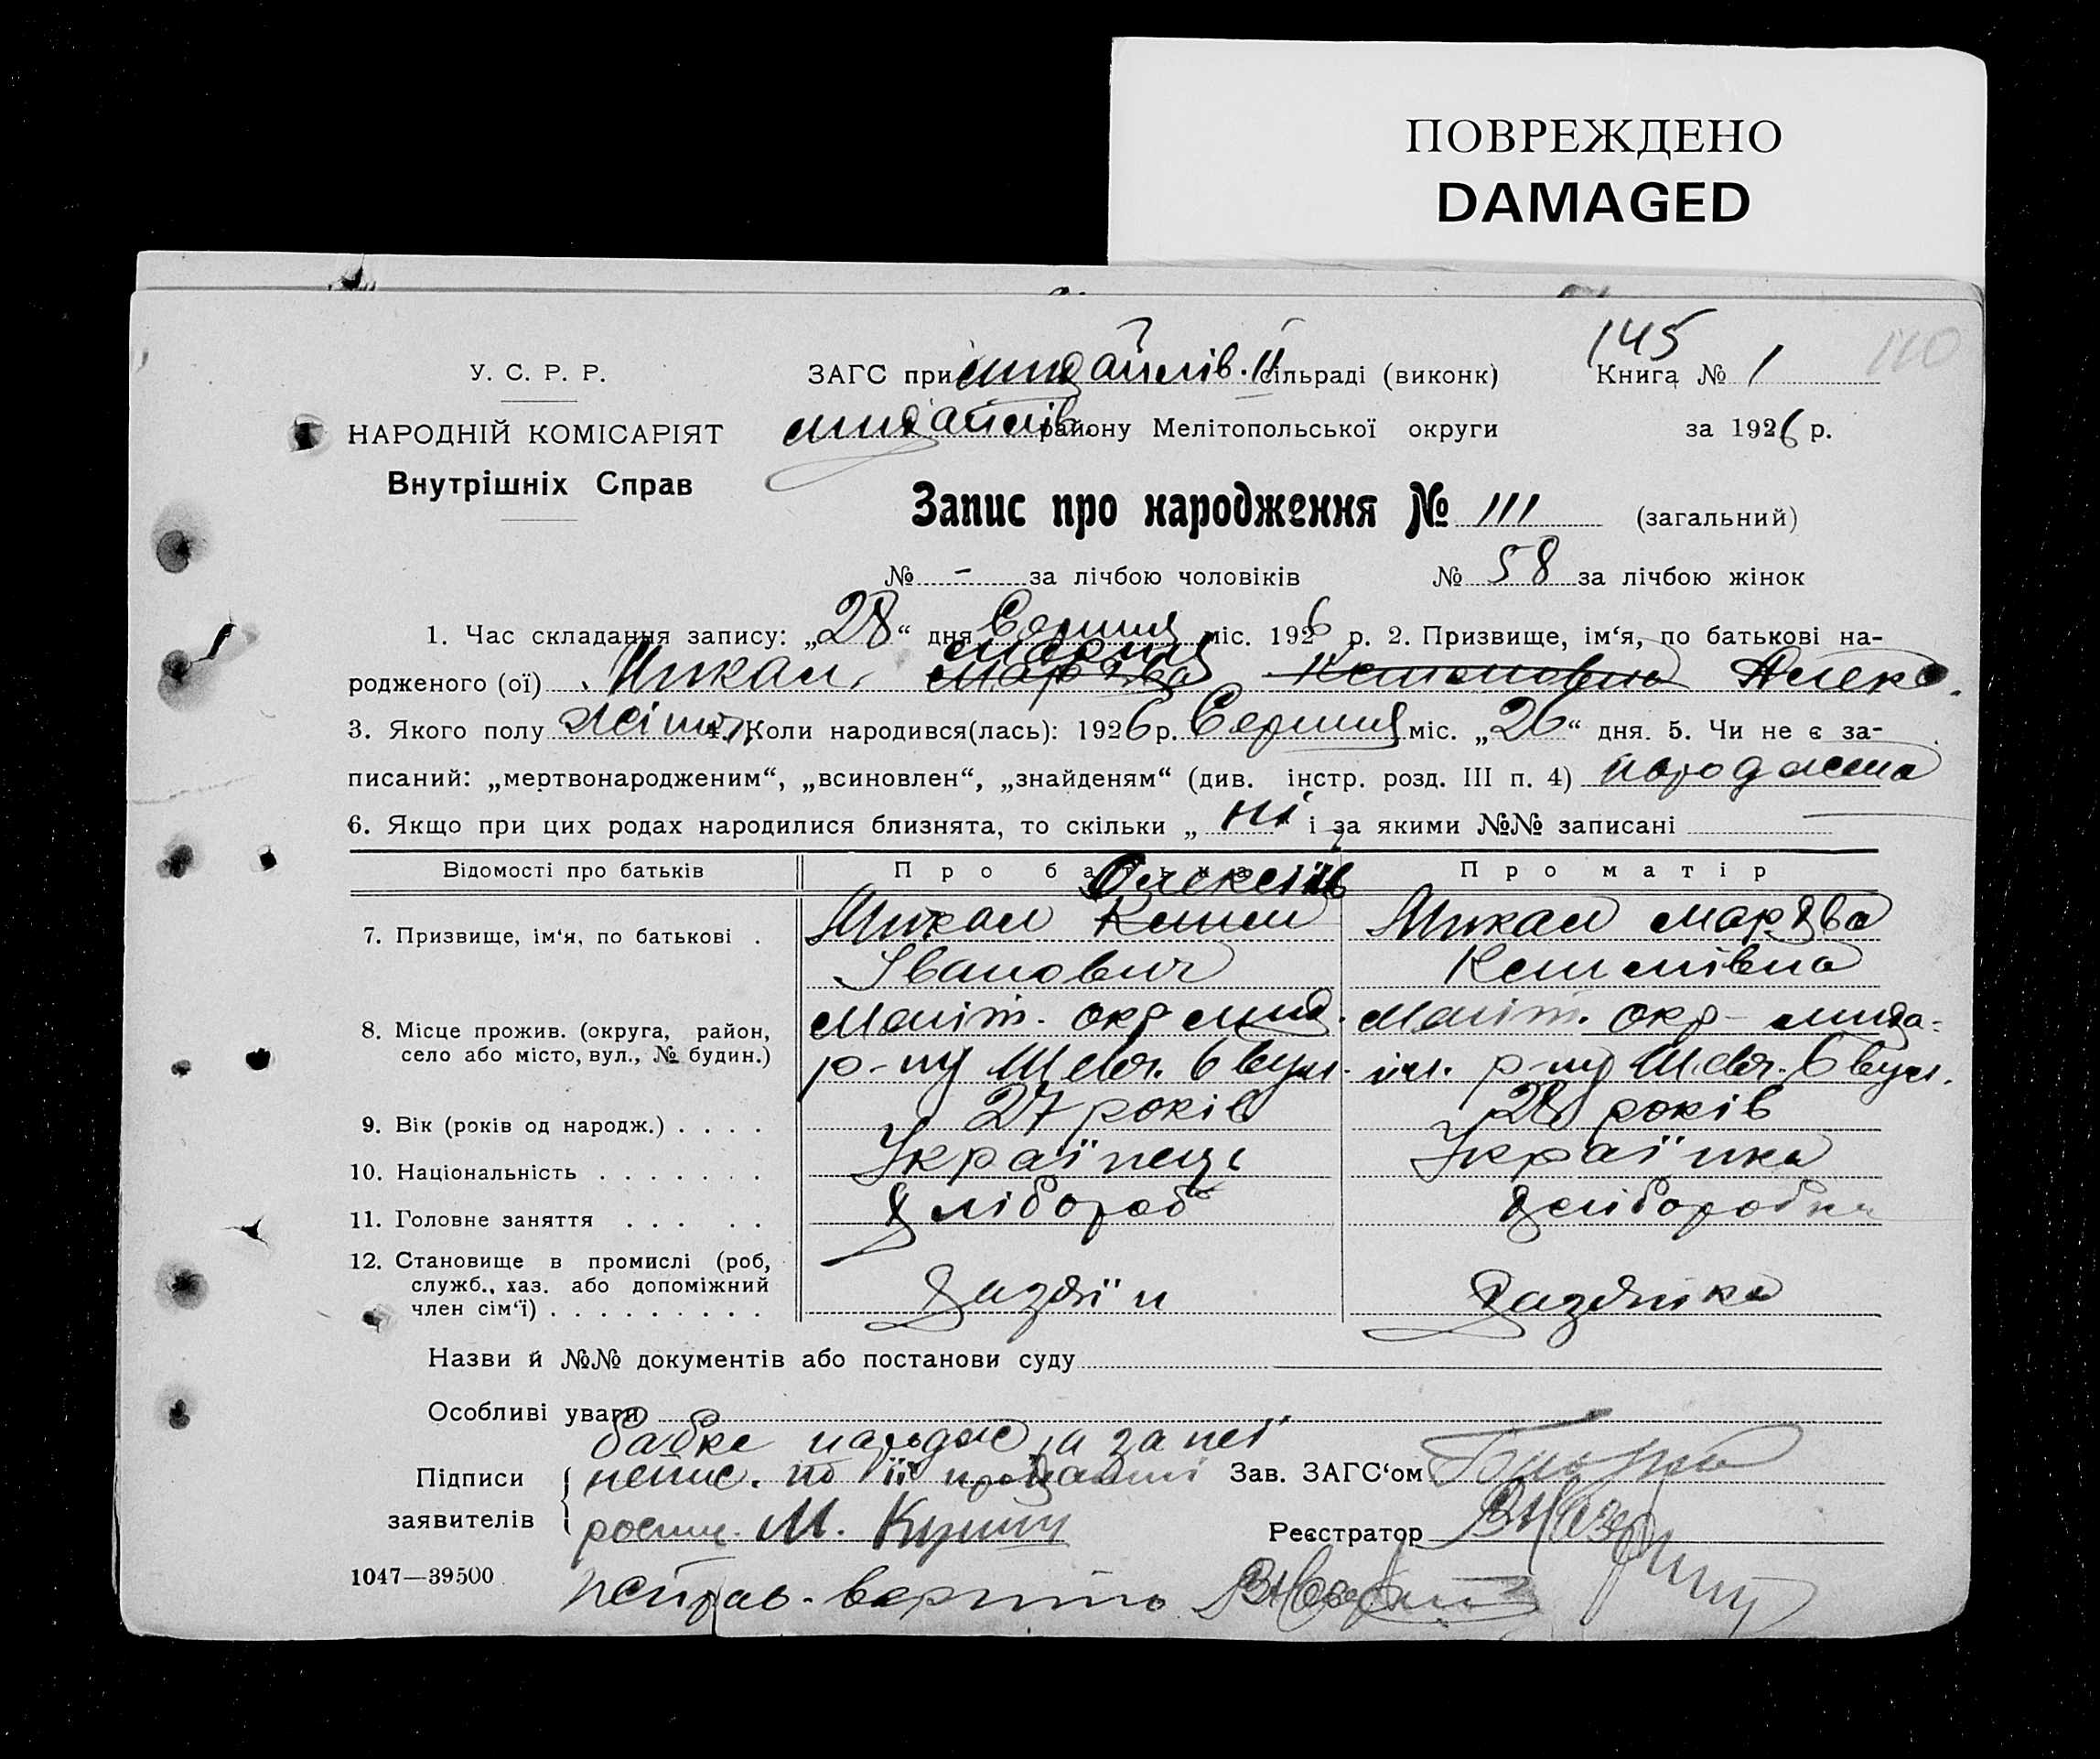 ПОВРЕЖДЕНО
DAMAGED
145
У. С. Р. Р.
ЗАГС при михайлів. II сільраді (виконк)
Книга № 1
110
НАРОДНІЙ КОМІСАРІЯТ
михайлів. району Мелітопольської округи
за 1926 р.
Внутрішніх Справ
Запис про народження № 111 (загальний)
№ - за лічбою чоловіків № 58 за лічбою жінок
1. Час складання запису: „28“ дня Серпня міс. 1926 р. 2. Призвище, ім‘я, по батькові на-
Марія
родженого (ої) Микал Алекс.
3. Якого полу жіноч. 4. Коли народився(лась): 1926 р. Серпня міс. „26“ дня. 5. Чи не є за-
писаний: „мертвонародженим“, „всиновлен“, „знайденям“ (див. інстр. розд. III п. 4) народжена
6. Якщо при цих родах народилися близнята, то скільки „ ні і за якими №№ записані
Відомості про батьків
Про батька
Про матір
Олексій
7. Призвище, ім‘я, по батькові .
Микал
Иванович
Микал Мархва
8. Місце прожив. (округа, район,
село або місто, вул., № будин.)
Меліт. окр мих.
р-ну Шевч. 6 вул.
Меліт. окр- миха-
йл. р-ну Шевч. 6 вул.
9. Вік (років од народж.) . . . .
27 років
28 років
10. Національність . . . . . . .
Українець
Українка
11. Головне заняття . . . . .
Хлібороб
Хліборобка
12. Становище в промислі (роб,
служб., хаз. або допоміжний
член сім‘ї) . . . . . . . . .
Хазяїн
Хазяйка
Назви й №№ документів або постанови суду
Особливі уваги
Підписи
заявителів
бабка за неї
непис. по її проханні
роспис. М.
Зав. ЗАГС‘ом
Реєстратор
1047—39500